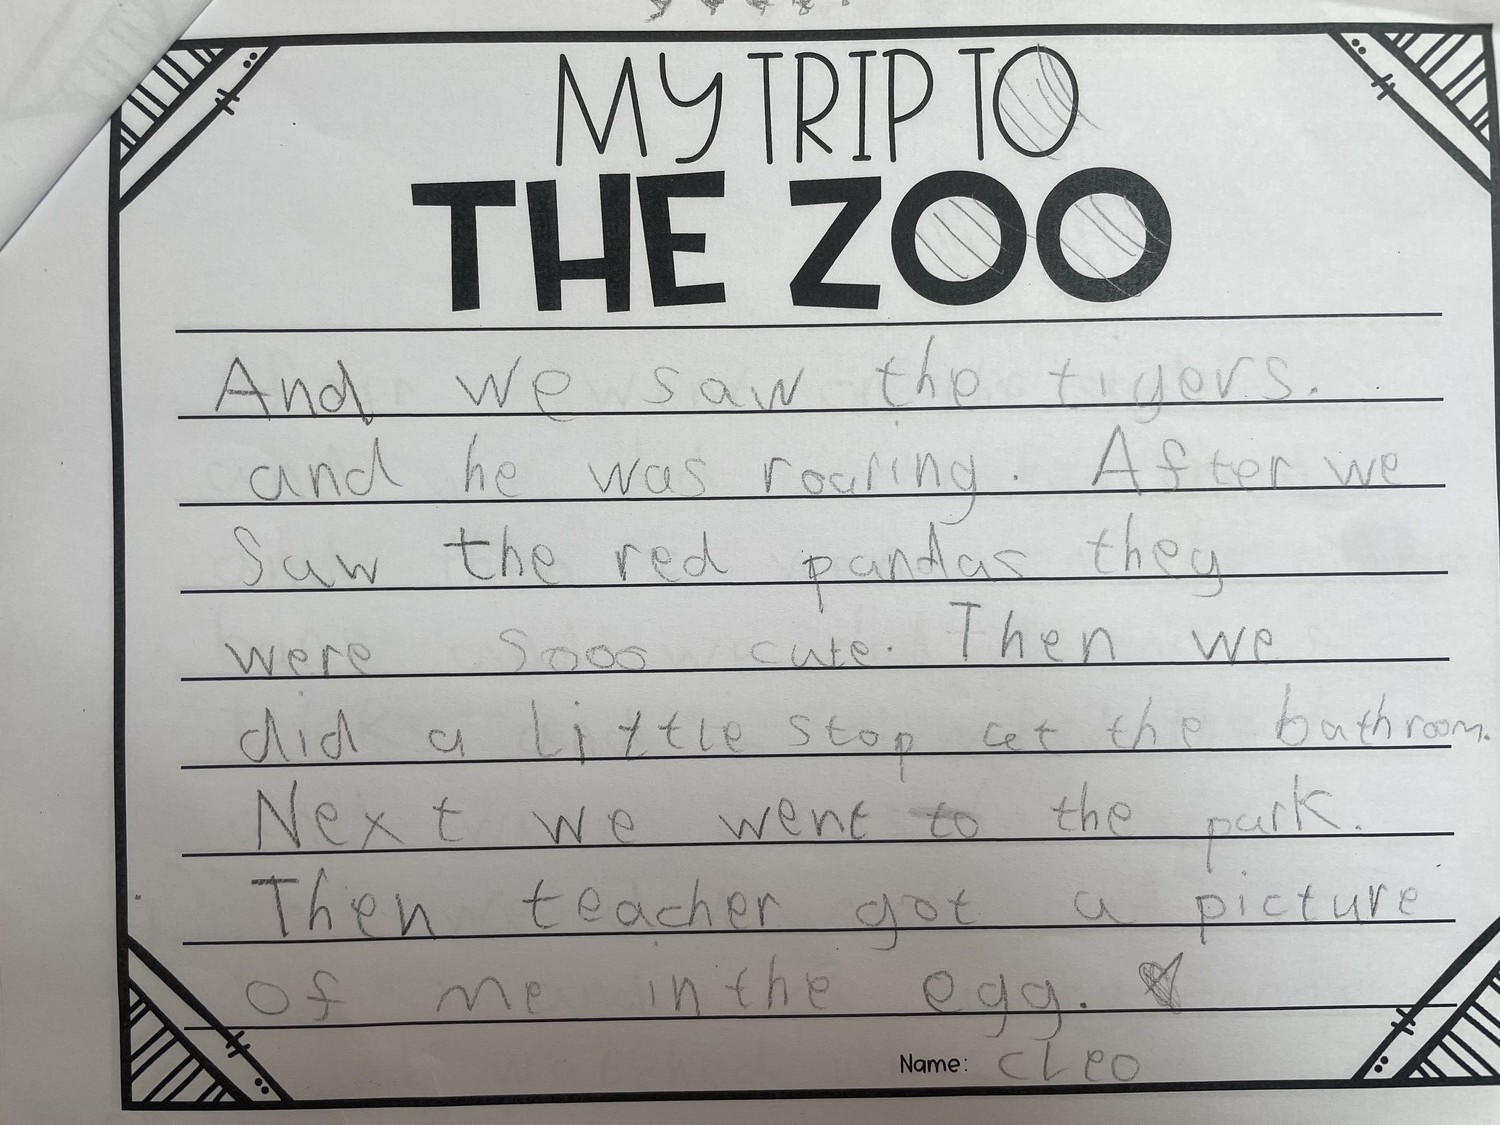 MY TRIP TO
THE ZOO
And we saw the tigers.
and he was roaring. After we
Saw the red pandas they
were Sooo cute. Then we
did a little stop at the bathroom.
Next we went to the park.
Then teacher got a picture
of me in the egg.
Name: cleo